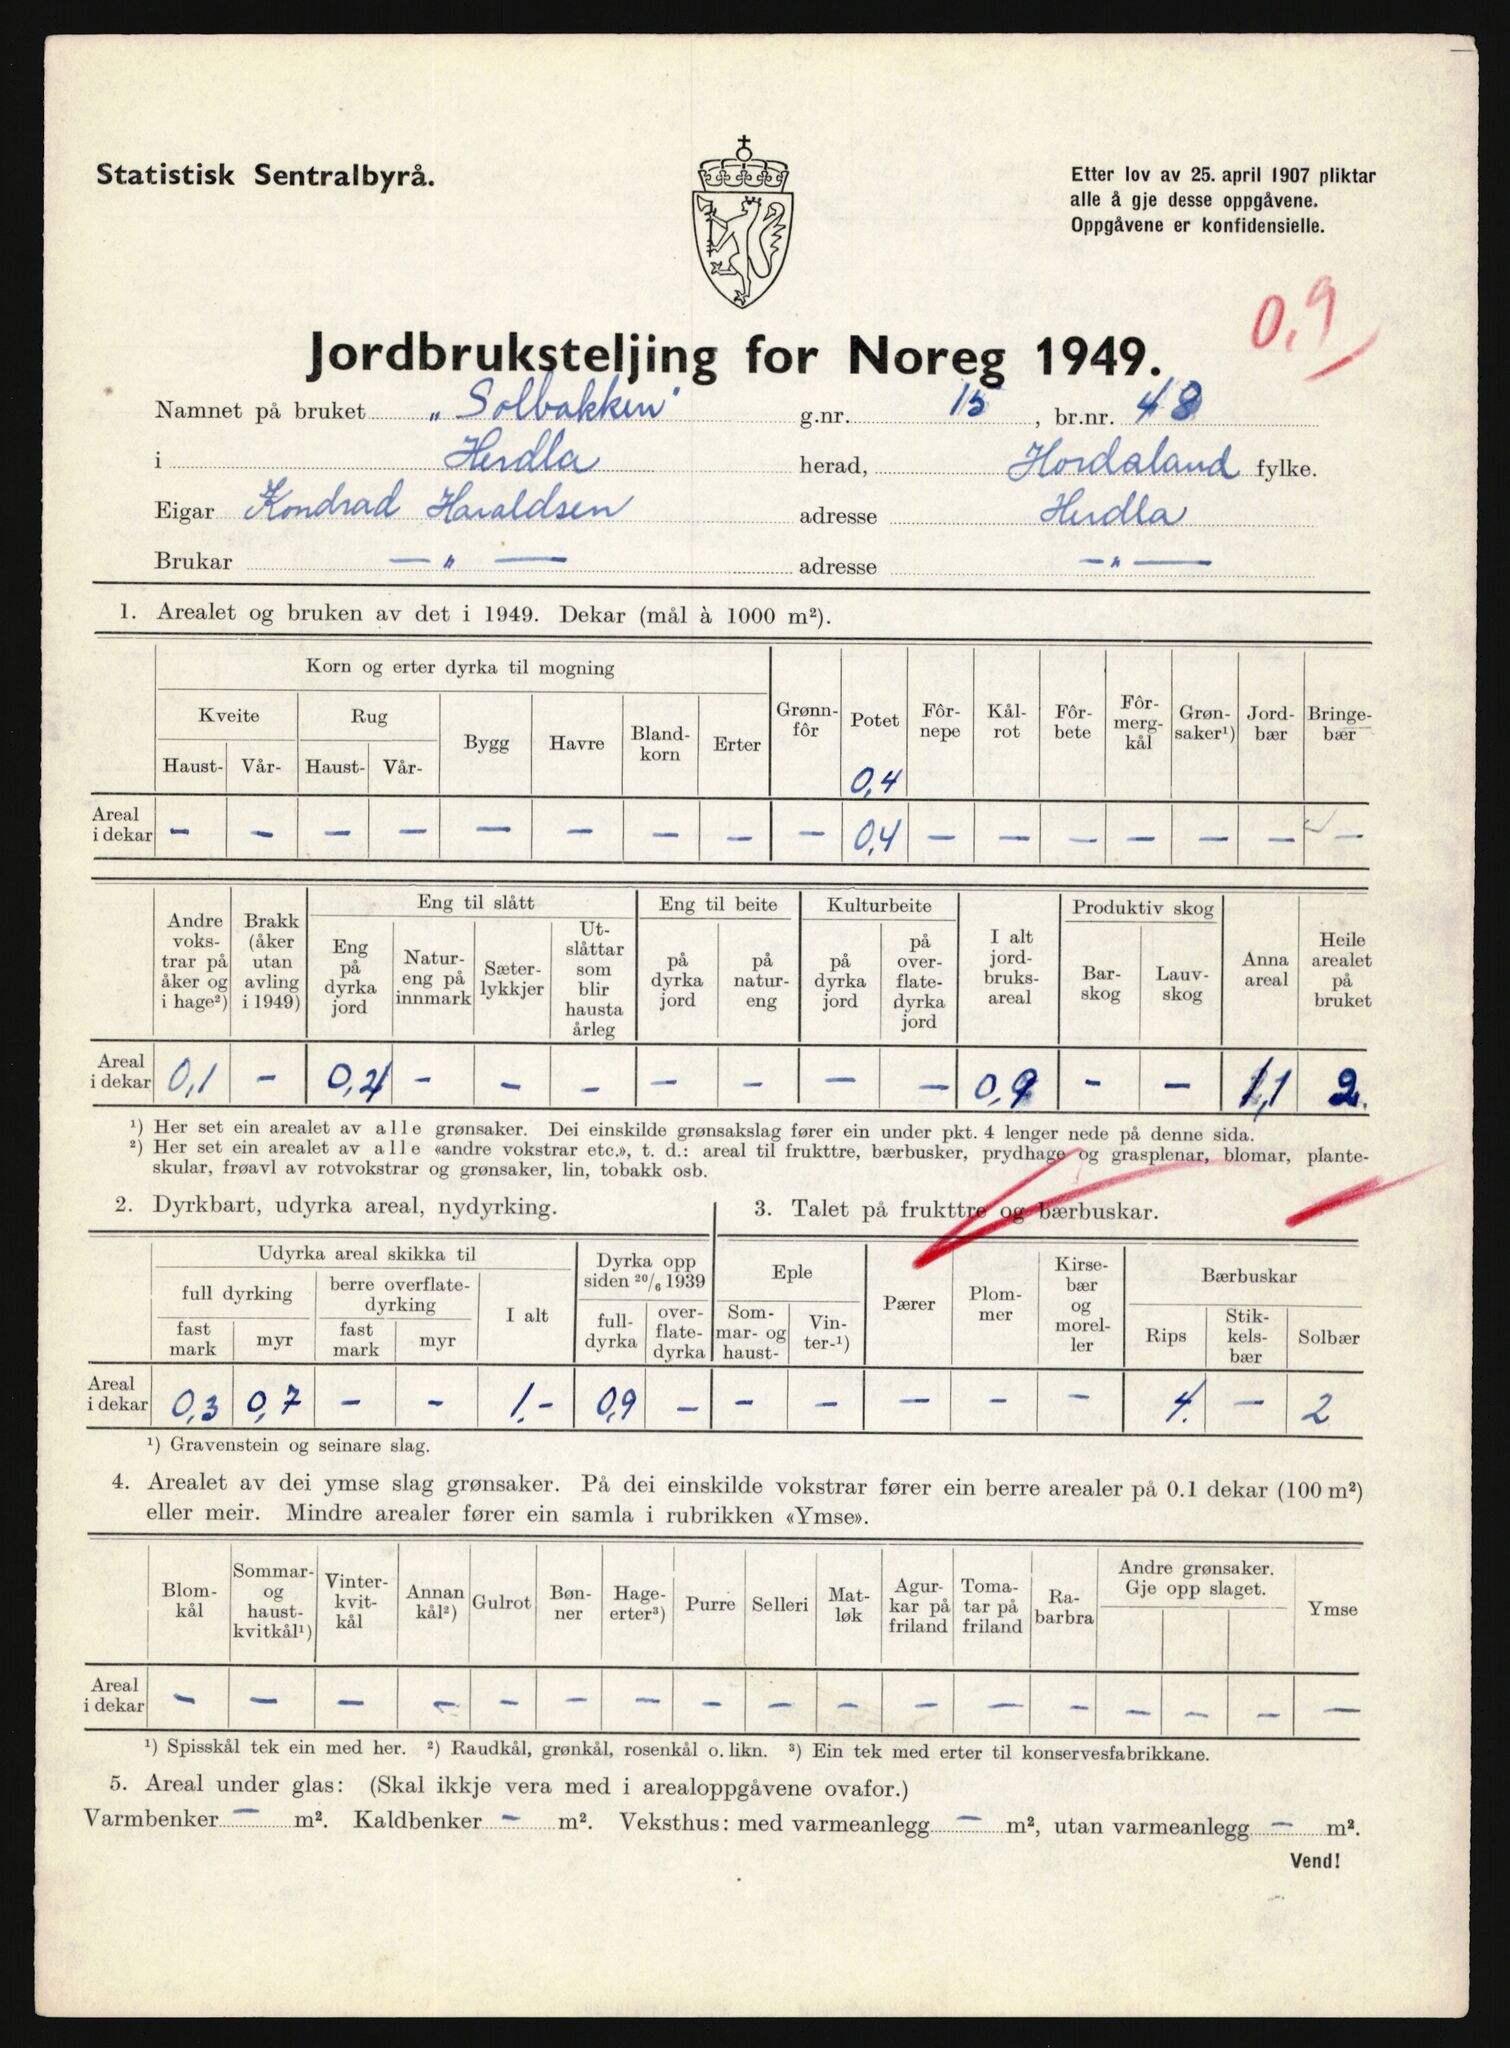 Statistisk Sentralbyrå.
Etter lov av 25. april 1907 pliktar
alle å gje desse oppgåvene.
Oppgåvene er konfidensielle.
0,9
Jordbruksteljing for Noreg 1949.
Namnet på bruket „Solbakken" g.nr. 15, br.nr. 48
i Herdla herad, Hordaland fylke.
Eigar Kondrad Haraldsen adresse Herdla
Brukar — „ — adresse — „ —
1. Arealet og bruken av det i 1949. Dekar (mål à 1000 m²).
Korn og erter dyrka til mogning
Kveite Rug Bygg Havre Bland-korn Erter Grønn-fôr Potet Fôr-nepe Kål-rot Fôr-bete Fôr-merg-kål Grøn-saker¹) Jord-bær Bringe-bær
Haust- Vår- Haust- Vår-
0,4
Areal i dekar — — — — — — — — — 0,4 — — — — — — —
Andre voks-trar på åker og i hage²) Brakk (åker utan avling i 1949) Eng til slått Eng til beite Kulturbeite I alt jord-bruks-areal Produktiv skog Anna areal Heile arealet på bruket
Eng på dyrka jord Natur-eng på innmark Sæter-lykkjer Ut-slåttar som blir hausta årleg på dyrka jord på natur-eng på dyrka jord på over-flate-dyrka jord Bar-skog Lauv-skog
Areal i dekar 0,1 — 0,4 — — — — — — — 0,9 — — 1,1 2.
¹) Her set ein arealet av alle grønsaker. Dei einskilde grønsakslag fører ein under pkt. 4 lenger nede på denne sida.
²) Her set ein arealet av alle «andre vokstrar etc.», t. d.: areal til frukttre, bærbusker, prydhage og grasplenar, blomar, plante-
skular, frøavl av rotvokstrar og grønsaker, lin, tobakk osb.
2. Dyrkbart, udyrka areal, nydyrking. 3. Talet på frukttre og bærbuskar.
Udyrka areal skikka til Dyrka opp siden 20/6 1939 Eple Pærer Plom-mer Kirse-bær og morel-ler Bærbuskar
full dyrking berre overflate-dyrking I alt full-dyrka over-flate-dyrka Som-mar- og haust- Vin-ter-¹) Rips Stik-kels-bær Solbær
fast mark myr fast mark myr
Areal i dekar 0,3 0,7 — — 1.- 0,9 — — — — — — 4. — 2
¹) Gravenstein og seinare slag.
4. Arealet av dei ymse slag grønsaker. På dei einskilde vokstrar fører ein berre arealer på 0.1 dekar (100 m²)
eller meir. Mindre arealer fører ein samla i rubrikken «Ymse».
Blom-kål Sommar- og haust-kvitkål¹) Vinter-kvit-kål Annan kål²) Gulrot Bøn-ner Hage-erter³) Purre Selleri Mat-løk Agur-kar på friland Toma-tar på friland Ra-barbra Andre grønsaker. Gje opp slaget. Ymse
Areal i dekar — — — — — — — — — — — — — — — — —
¹) Spisskål tek ein med her. ²) Raudkål, grønkål, rosenkål o. likn. ³) Ein tek med erter til konservesfabrikkane.
5. Areal under glas: (Skal ikkje vera med i arealoppgåvene ovafor.)
Varmbenker — m². Kaldbenker — m². Veksthus: med varmeanlegg — m², utan varmeanlegg — m².
Vend!